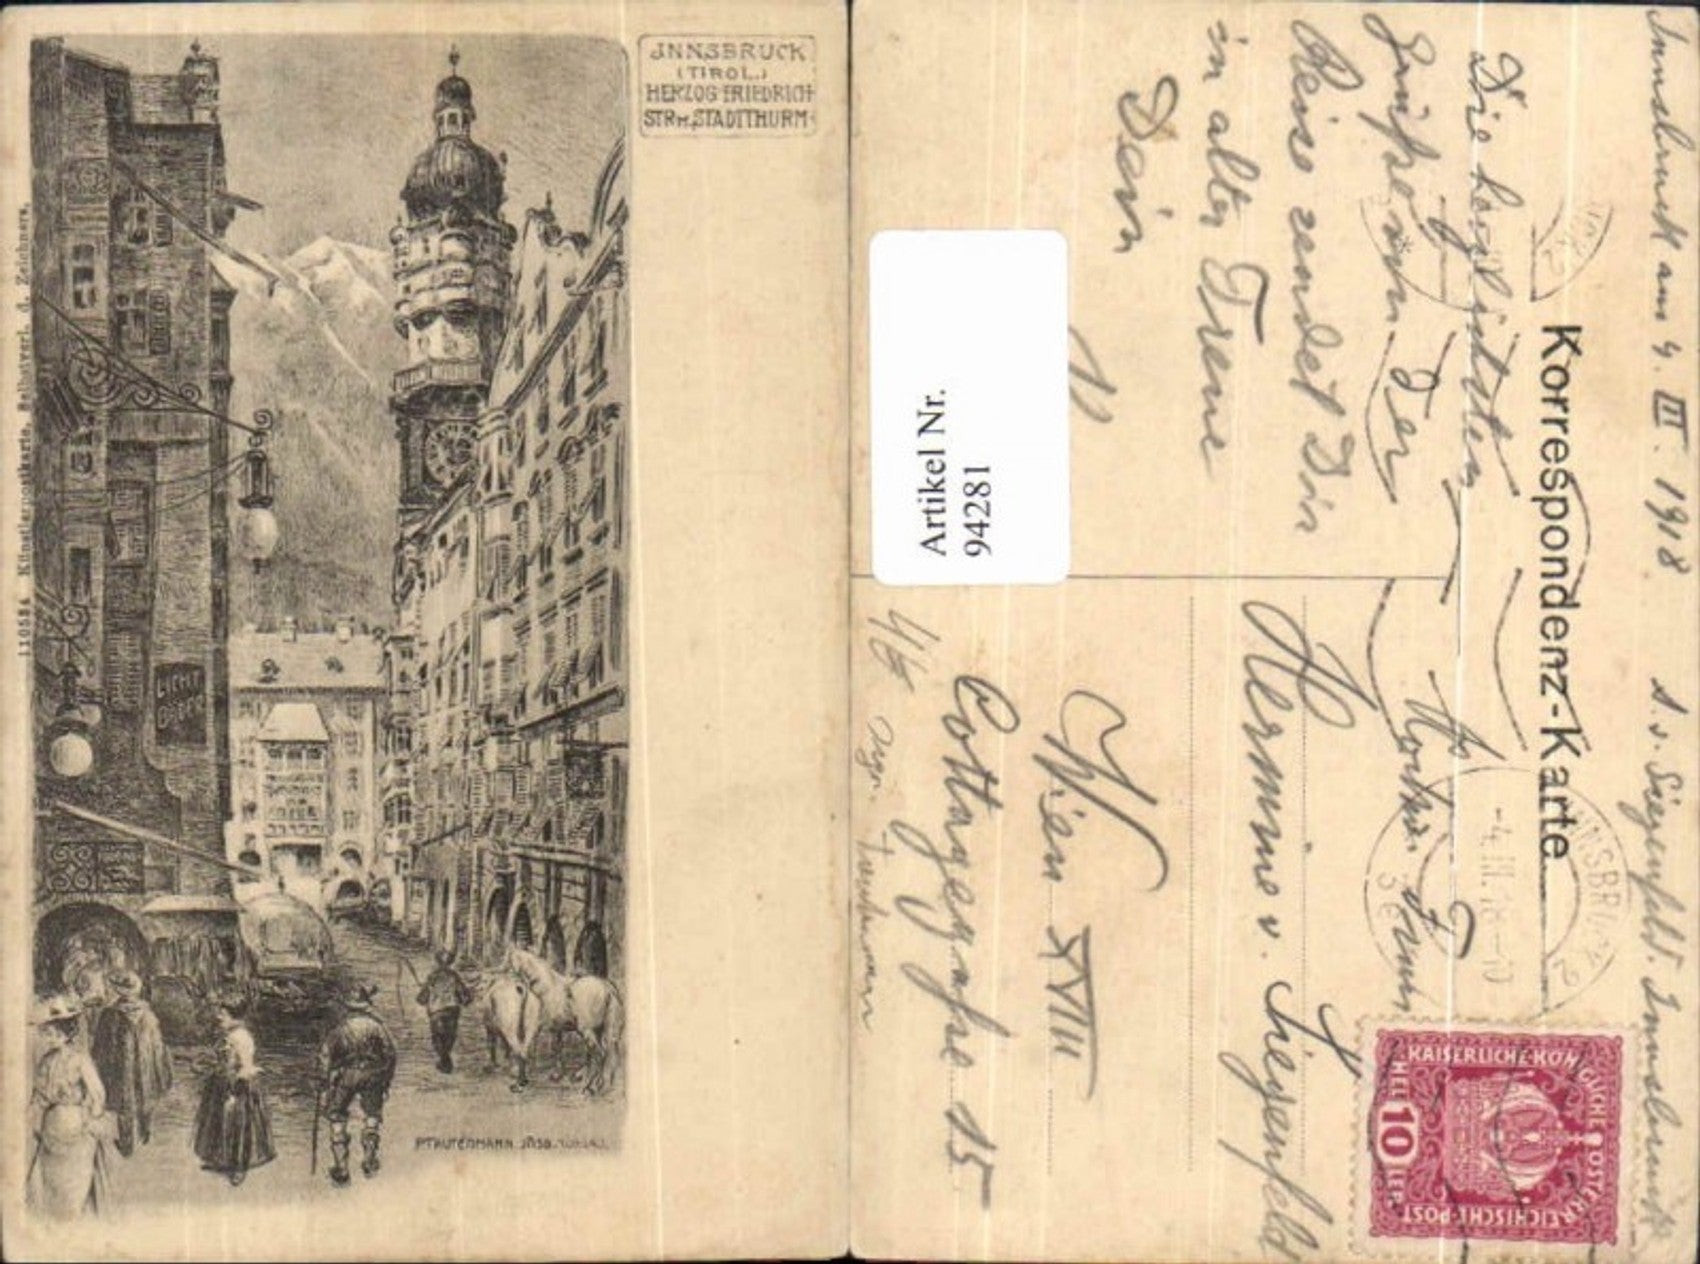 INNSBRUCK
(TIROL.)
HERZOG FRIEDRICH
STR. M. STADTTHURM
11058A Künstlerpostkarte, Selbstverl. d. Zeichners.
LICHT
P. TRAUTERMANN JNSB.
Innsbruck am 4. III. 1918
s. v. Siegenfeld. Innsbruck
Korrespondenz-Karte
Die herzlichsten
Grüße von der
Reise sendet Dir
in alter Treue
Dein
Artikel Nr.
94281
INNSBRUCK 2
-4.III.18-10
KAISERLICHE KÖNIGLICHE
ÖSTERREICHISCHE POST
HELLER 10
Hermine v. Siegenfeld
Wien XVIII
Cottagegasse 15